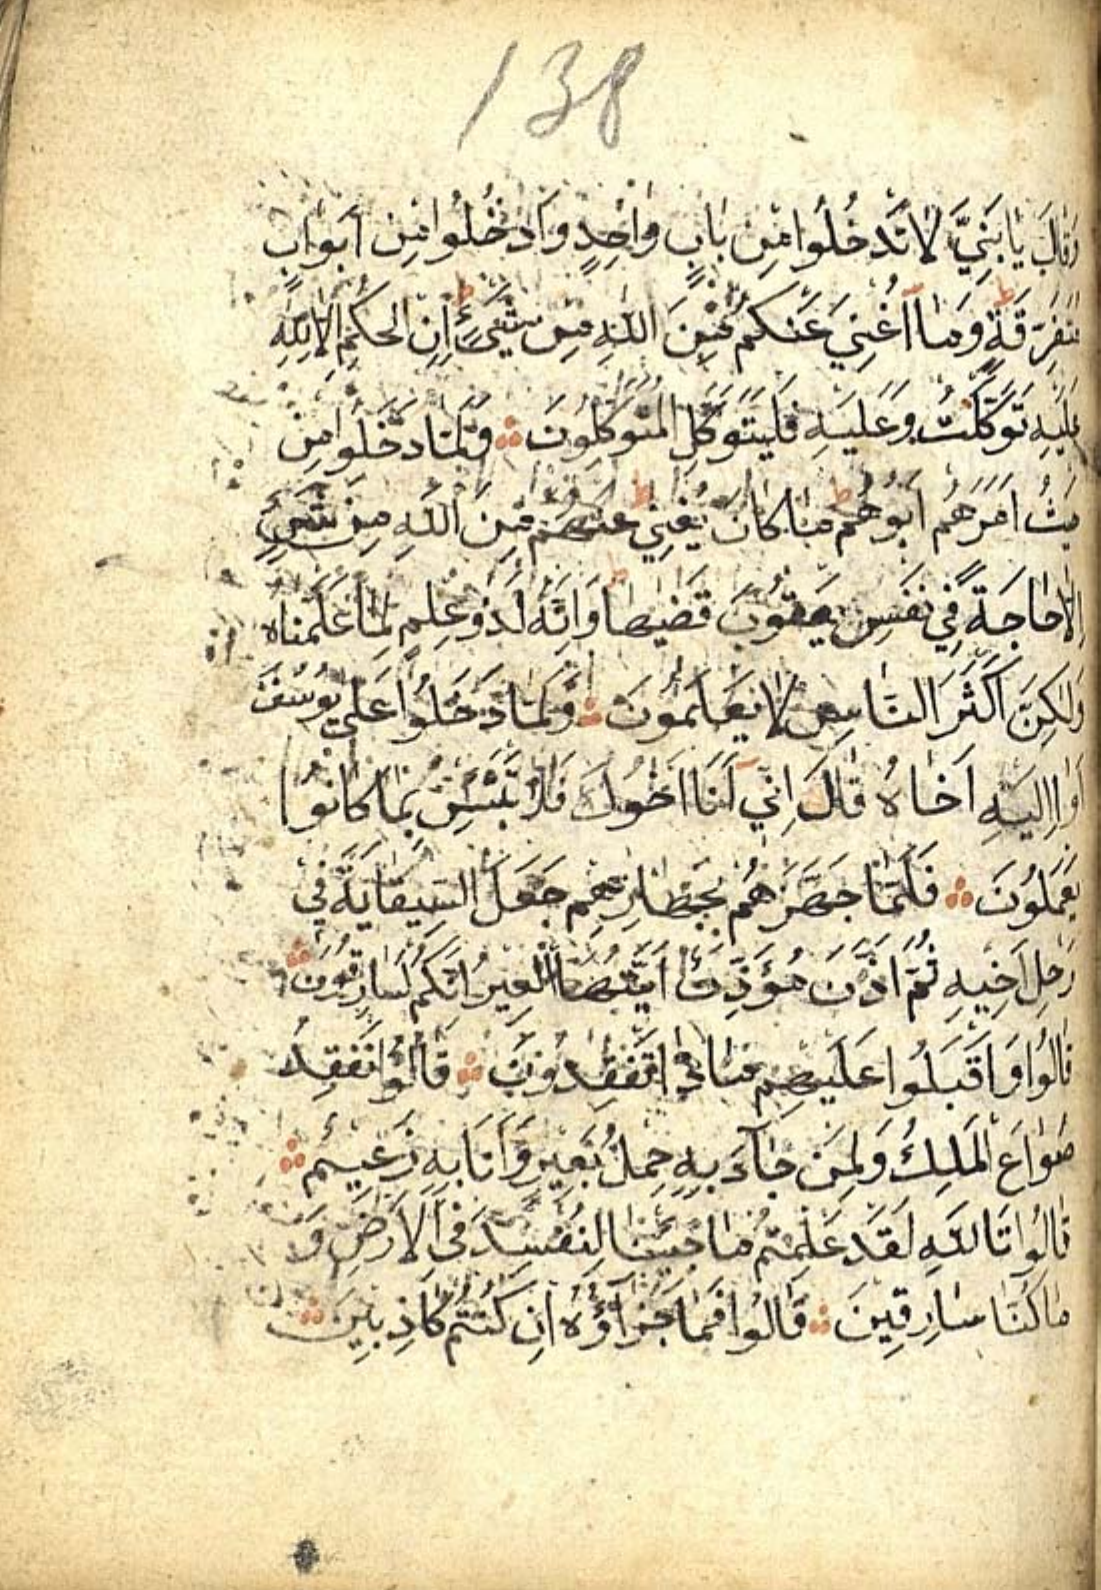 138
وَقَالَ يَا بَنِيَّ لَا تَدْخُلُوا مِنْ بَابٍ وَاحِدٍ وَادْخُلُوا مِنْ اَبْوَابٍ
مُتَفَرِّقَةٍ ط وَمَٓا اُغْنِي عَنْكُمْ مِنَ اللّٰهِ مِنْ شَيْءٍ ط اِنِ الْحُكْمُ اِلَّا لِلّٰهِ
عَلَيْهِ تَوَكَّلْتُ وَعَلَيْهِ فَلْيَتَوَكَّلِ الْمُتَوَكِّلُونَ ۞ وَلَمَّا دَخَلُوا مِنْ
حَيْثُ اَمَرَهُمْ اَبُوهُمْ ط مَا كَانَ يُغْنِي عَنْهُمْ مِنَ اللّٰهِ مِنْ شَيْءٍ
اِلَّا حَاجَةً فِي نَفْسِ يَعْقُوبَ قَضٰيهَا ط وَاِنَّهُ لَذُو عِلْمٍ لِمَا عَلَّمْنَاهُ
وَلٰكِنَّ اَكْثَرَ النَّاسِ لَا يَعْلَمُونَ ۞ وَلَمَّا دَخَلُوا عَلٰى يُوسُفَ
اٰوٰا اِلَيْهِ اَخَاهُ قَالَ اِنِّٓي اَنَا اَخُوكَ فَلَا تَبْتَئِسْ بِمَا كَانُوا
يَعْمَلُونَ ۞ فَلَمَّا جَهَّزَهُمْ بِجَهَازِهِمْ جَعَلَ السِّقَايَةَ فِي
رَحْلِ اَخِيهِ ثُمَّ اَذَّنَ مُؤَذِّنٌ اَيَّتُهَا الْعِيرُ اِنَّكُمْ لَسَارِقُونَ ۞
قَالُوا وَاَقْبَلُوا عَلَيْهِمْ مَاذَا تَفْقِدُونَ ۞ قَالُوا نَفْقِدُ
صُوَاعَ الْمَلِكِ وَلِمَنْ جَآءَ بِهِ حِمْلُ بَعِيرٍ وَاَنَا بِهِ زَعِيمٌ ۞
قَالُوا تَاللّٰهِ لَقَدْ عَلِمْتُمْ مَا جِئْنَا لِنُفْسِدَ فِي الْاَرْضِ وَ
مَا كُنَّا سَارِقِينَ ۞ قَالُوا فَمَا جَزَآؤُهُ اِنْ كُنْتُمْ كَاذِبِينَ ۞